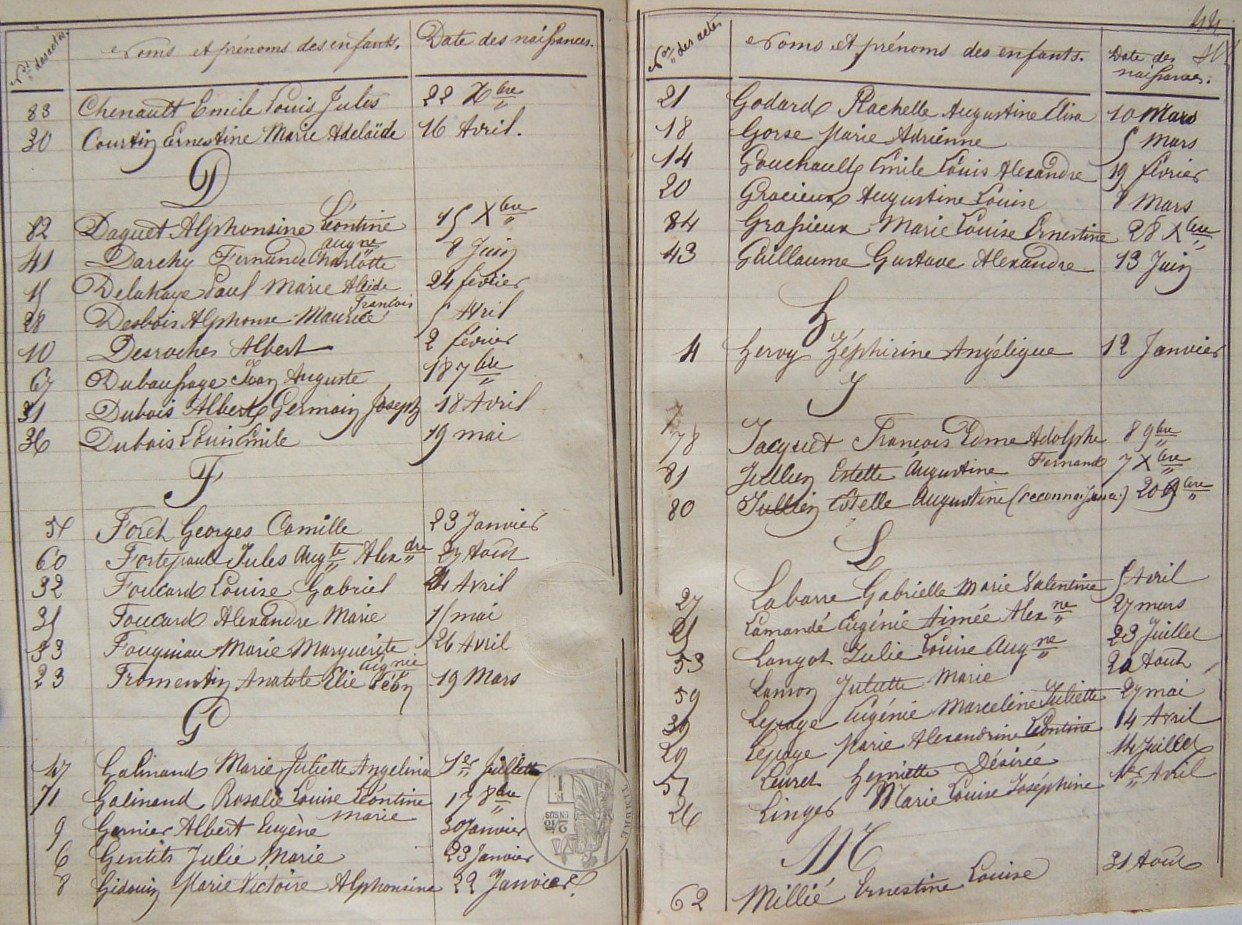 Nos des actes. Noms et prénoms des enfants. Date des naissances.
83 Chenault Emile Louis Jules 22 Xbre
30 Courtin Ernestine Marie Adelaïde 16 Avril.
D
82 Daguet Alphonsine Léontine 15 Xbre
41 Darchy Fernande Charlotte Augne 8 Juin
15 Delahaye Paul Marie 24 février
28 Desbois Alphonse Maurice François 5 Avril
10 Desroches Albert 2 février
67 Jean Auguste 18 7bre
31 Dubois Albert Germain Joseph 18 Avril
36 Dubois Louis Emile 19 mai
F
Foret Georges Camille 23 Janvier
60 Fortepaul Jules Augte Alexdre 27 Août
32 Foucard Louise Gabriel 24 Avril
35 Foucard Alexandre Marie mai
33 Marie Marguerite 26 Avril
23 Fromentin Anatole Elie Léon 19 Mars
G
47 Galinand Marie Juliette Angelina 1er Juillet
71 Galinand Rosalie Louise Léontine 17 8bre
9 Garnier Albert Eugène Marie 30 Janvier
6 Gentils Julie Marie 23 Janvier
8 Gidouin Marie Victoire Alphonsine 22 Janvier.
TIMBRE
2/10 EN SUS
44
Nos des actes Noms et prénoms des enfants. Date des naissances.
21 Godard Rachelle Augustine Elisa 10 Mars
18 Gorse Marie Adrienne 5 Mars
14 Gouchault Emile Louis Alexandre 19 février
20 Gracieux Augustine Louise Mars
84 Grassieux Marie Louise Ernestine 28 Xbre
43 Guillaume Gustave Alexandre 13 Juin
H
4 Hervy Zéphirine Angélique 12 Janvier
J
78 Jacquet François Edme Adolphe 8 9bre
81 Jullien Estelle Augustine Fernand 7 Xbre
80 Jullien Estelle Augustine 20 9bre
L
27 Labarre Gabrielle Marie Valentine 5 Avril
25 Lamandé Eugénie Aimée Alexne 27 mars
53 Langot Julie Louise Augne 23 Juillet
59 Juliette Marie Août
39 Lepage Eugénie Marceline Juliette 27 mai
29 Lepage Marie Alexandrine Léontine 14 Avril
57 Leuret Henriette Désirée 14 Juillet
26 Linger Marie Louise Joséphine 1er Avril
M
62 Millié Ernestine Louise 31 Août